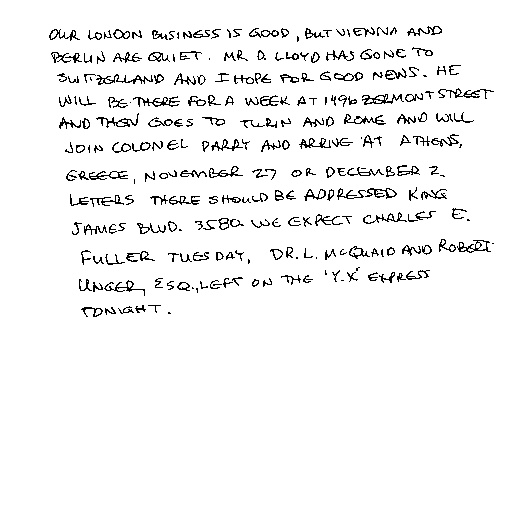 OUR LONDON BUSINESS IS GOOD, BUT VIENNA AND
BERLIN ARE QUIET. MR D. LLOYD HAS GONE TO
SWITZERLAND AND I HOPE FOR GOOD NEWS. HE
WILL BE THERE FOR A WEEK AT 1496 ZERMONT STREET
AND THEN GOES TO TURIN AND ROME AND WILL
JOIN COLONEL PARRY AND ARRIVE AT ATHENS,
GREECE, NOVEMBER 27 OR DECEMBER 2.
LETTERS THERE SHOULD BE ADDRESSED KING
JAMES BLVD. 3580. WE EXPECT CHARLES E.
FULLER TUESDAY, DR. L. MCQUAID AND ROBERT
UNGER, ESQ., LEFT ON THE 'Y.X' EXPRESS
TONIGHT.